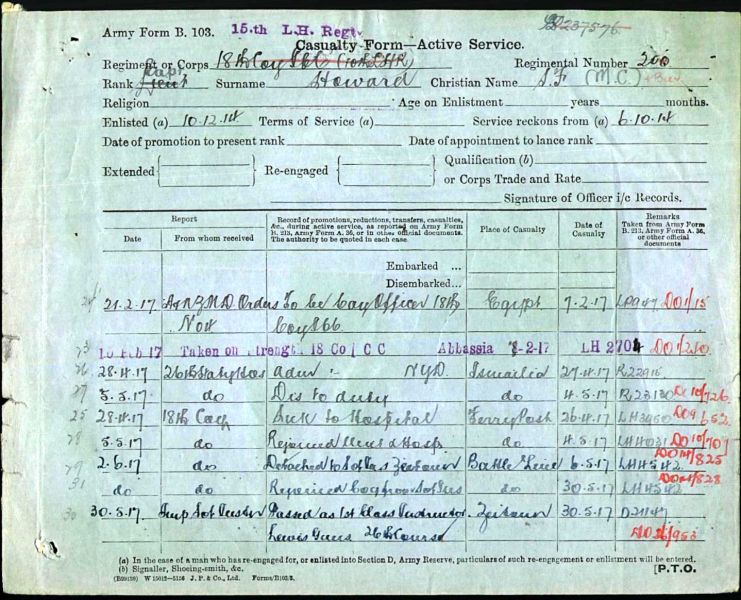 Army Form B. 103. 15.th L.H. Regt. B237576
Casualty Form—Active Service.
Regiment or Corps 18th Coy Regimental Number 200
Rank Capt Lieut Surname Howard Christian Name S.F (M.C)
Religion Age on Enlistment years months.
Enlisted (a) 10.12.14 Terms of Service (a) Service reckons from (a) 6.10.14
Date of promotion to present rank Date of appointment to lance rank
Extended Re-engaged Qualification (b)
or Corps Trade and Rate
Signature of Officer i/c Records.
Report
Date From whom received
Record of promotions, reductions, transfers, casualties, &c., during active service, as reported on Army Form B. 213, Army Form A. 36, or in other official documents. The authority to be quoted in each case.
Place of Casualty
Date of Casualty
Remarks Taken from Army Form B. 213, Army Form A. 36, or other official documents
Embarked ...
Disembarked ...
21.2.17 Orders To be Coy Officer 18th Egypt 7.2.17 DO1/15
Coy
Feb 17 Taken on Strength 18 Co I C C Abbassia 2-17 LH 270
28.4.17 Adm :- NYD Ismailia 27.4.17 R22915
27 5.5.17 do Dis to duty do 4.5.17 R23130
25 28.4.17 18th Coy Sick to Hospital Ferry Post 26.4.17 LH3950 DO9/652
28 5.5.17 do Rejoined Unit Hosp. do 4.5.17 LH4031 DO10/701
29 2.6.17 do Detached to Zeitoun 6.5.17 LH4542 /825
31 do do Rejoined Coy from do 30.5.17 LH4542 /828
30 30.5.17 Passed as 1st Class Instructor Zeitoun 30.5.17 D2147
Lewis Guns 26th Course /953
(a) In the case of a man who has re-engaged for, or enlisted into Section D, Army Reserve, particulars of such re-engagement or enlistment will be entered.
(b) Signaller, Shoeing-smith, &c.
J. P. & Co., Ltd. Forms/B103/3. [P.T.O.